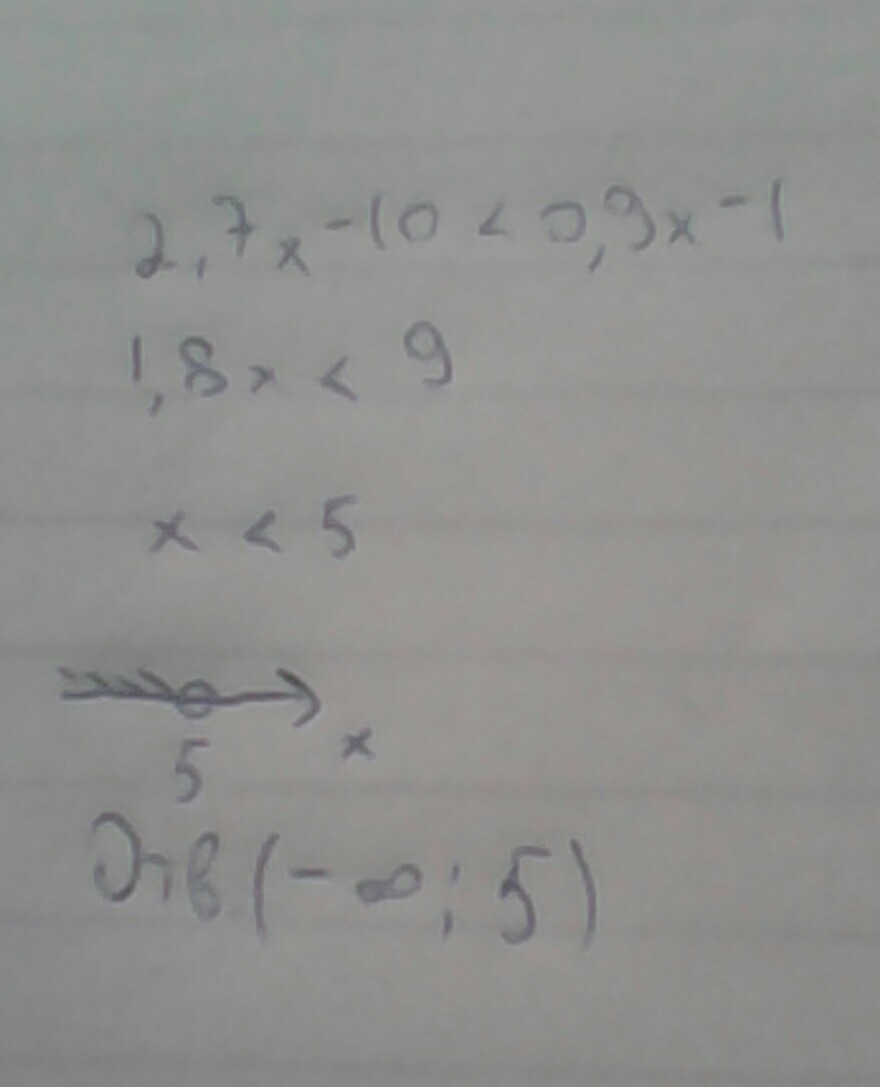 2,7x-10 < 0,9x-1
1,8x < 9
x < 5
5 x
Отв (-∞; 5)